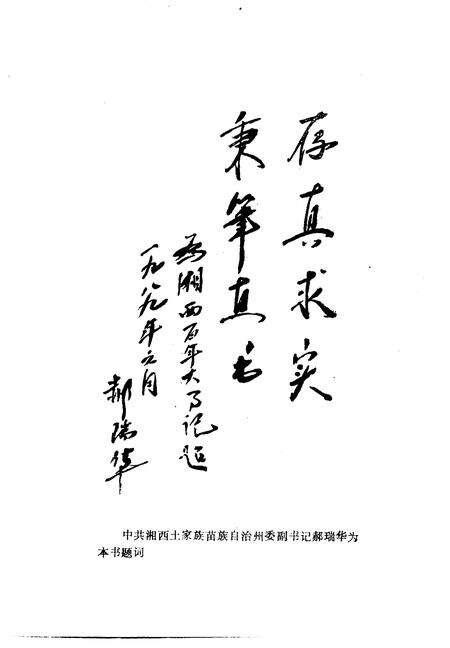 存真求实
秉笔直书
为湘西百年大事记题
一九八九年元月
郝瑞华
中共湘西土家族苗族自治州委副书记郝瑞华为
本书题词